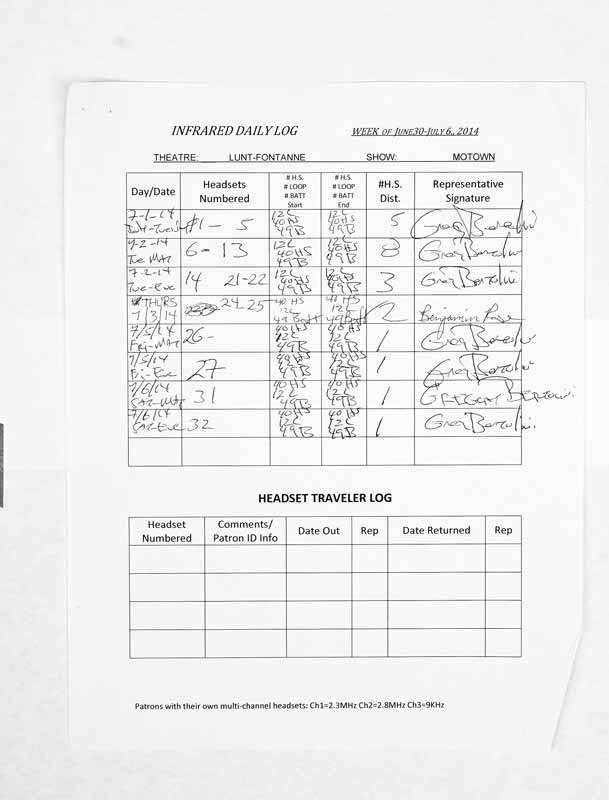 INFRARED DAILY LOG WEEK OF JUNE30-JULY 6., 2014
THEATRE: LUNT-FONTANNE SHOW: MOTOWN
Day/Date Headsets Numbered # H.S. # LOOP # BATT Start # H.S. # LOOP # BATT End #H.S. Dist. Representative Signature
7-1-14 #1 - 5 12L 40HS 49B 12L 40HS 49B 5 Greg
7-2-14 Tue MAT 6 - 13 12L 40HS 49B 12L 40HS 49B 8 Greg
7-2-14 Tue-Eve 14 21-22 12L 40HS 49B 12L 40HS 49B 3 Greg
THURS 7/3/14 24-25 40 HS 12L 49 Batt 40 HS 12L 49 Batt 2 Benjamin Rose
7/5/14 Fri-MAT 26- 40HS 12L 49B 40HS 12L 49B 1
7/5/14 Fri-Eve 27 40HS 12L 49B 40HS 12L 49B 1 Greg
7/6/14 SAT-MAT 31 40HS 12L 49B 40HS 12L 49B 1
7/6/14 SAT-Eve 32 40HS 12L 49B 40HS 12L 49B 1 Greg
HEADSET TRAVELER LOG
Headset Numbered Comments/ Patron ID Info Date Out Rep Date Returned Rep
Patrons with their own multi-channel headsets: Ch1=2.3MHz Ch2=2.8MHz Ch3=9KHz